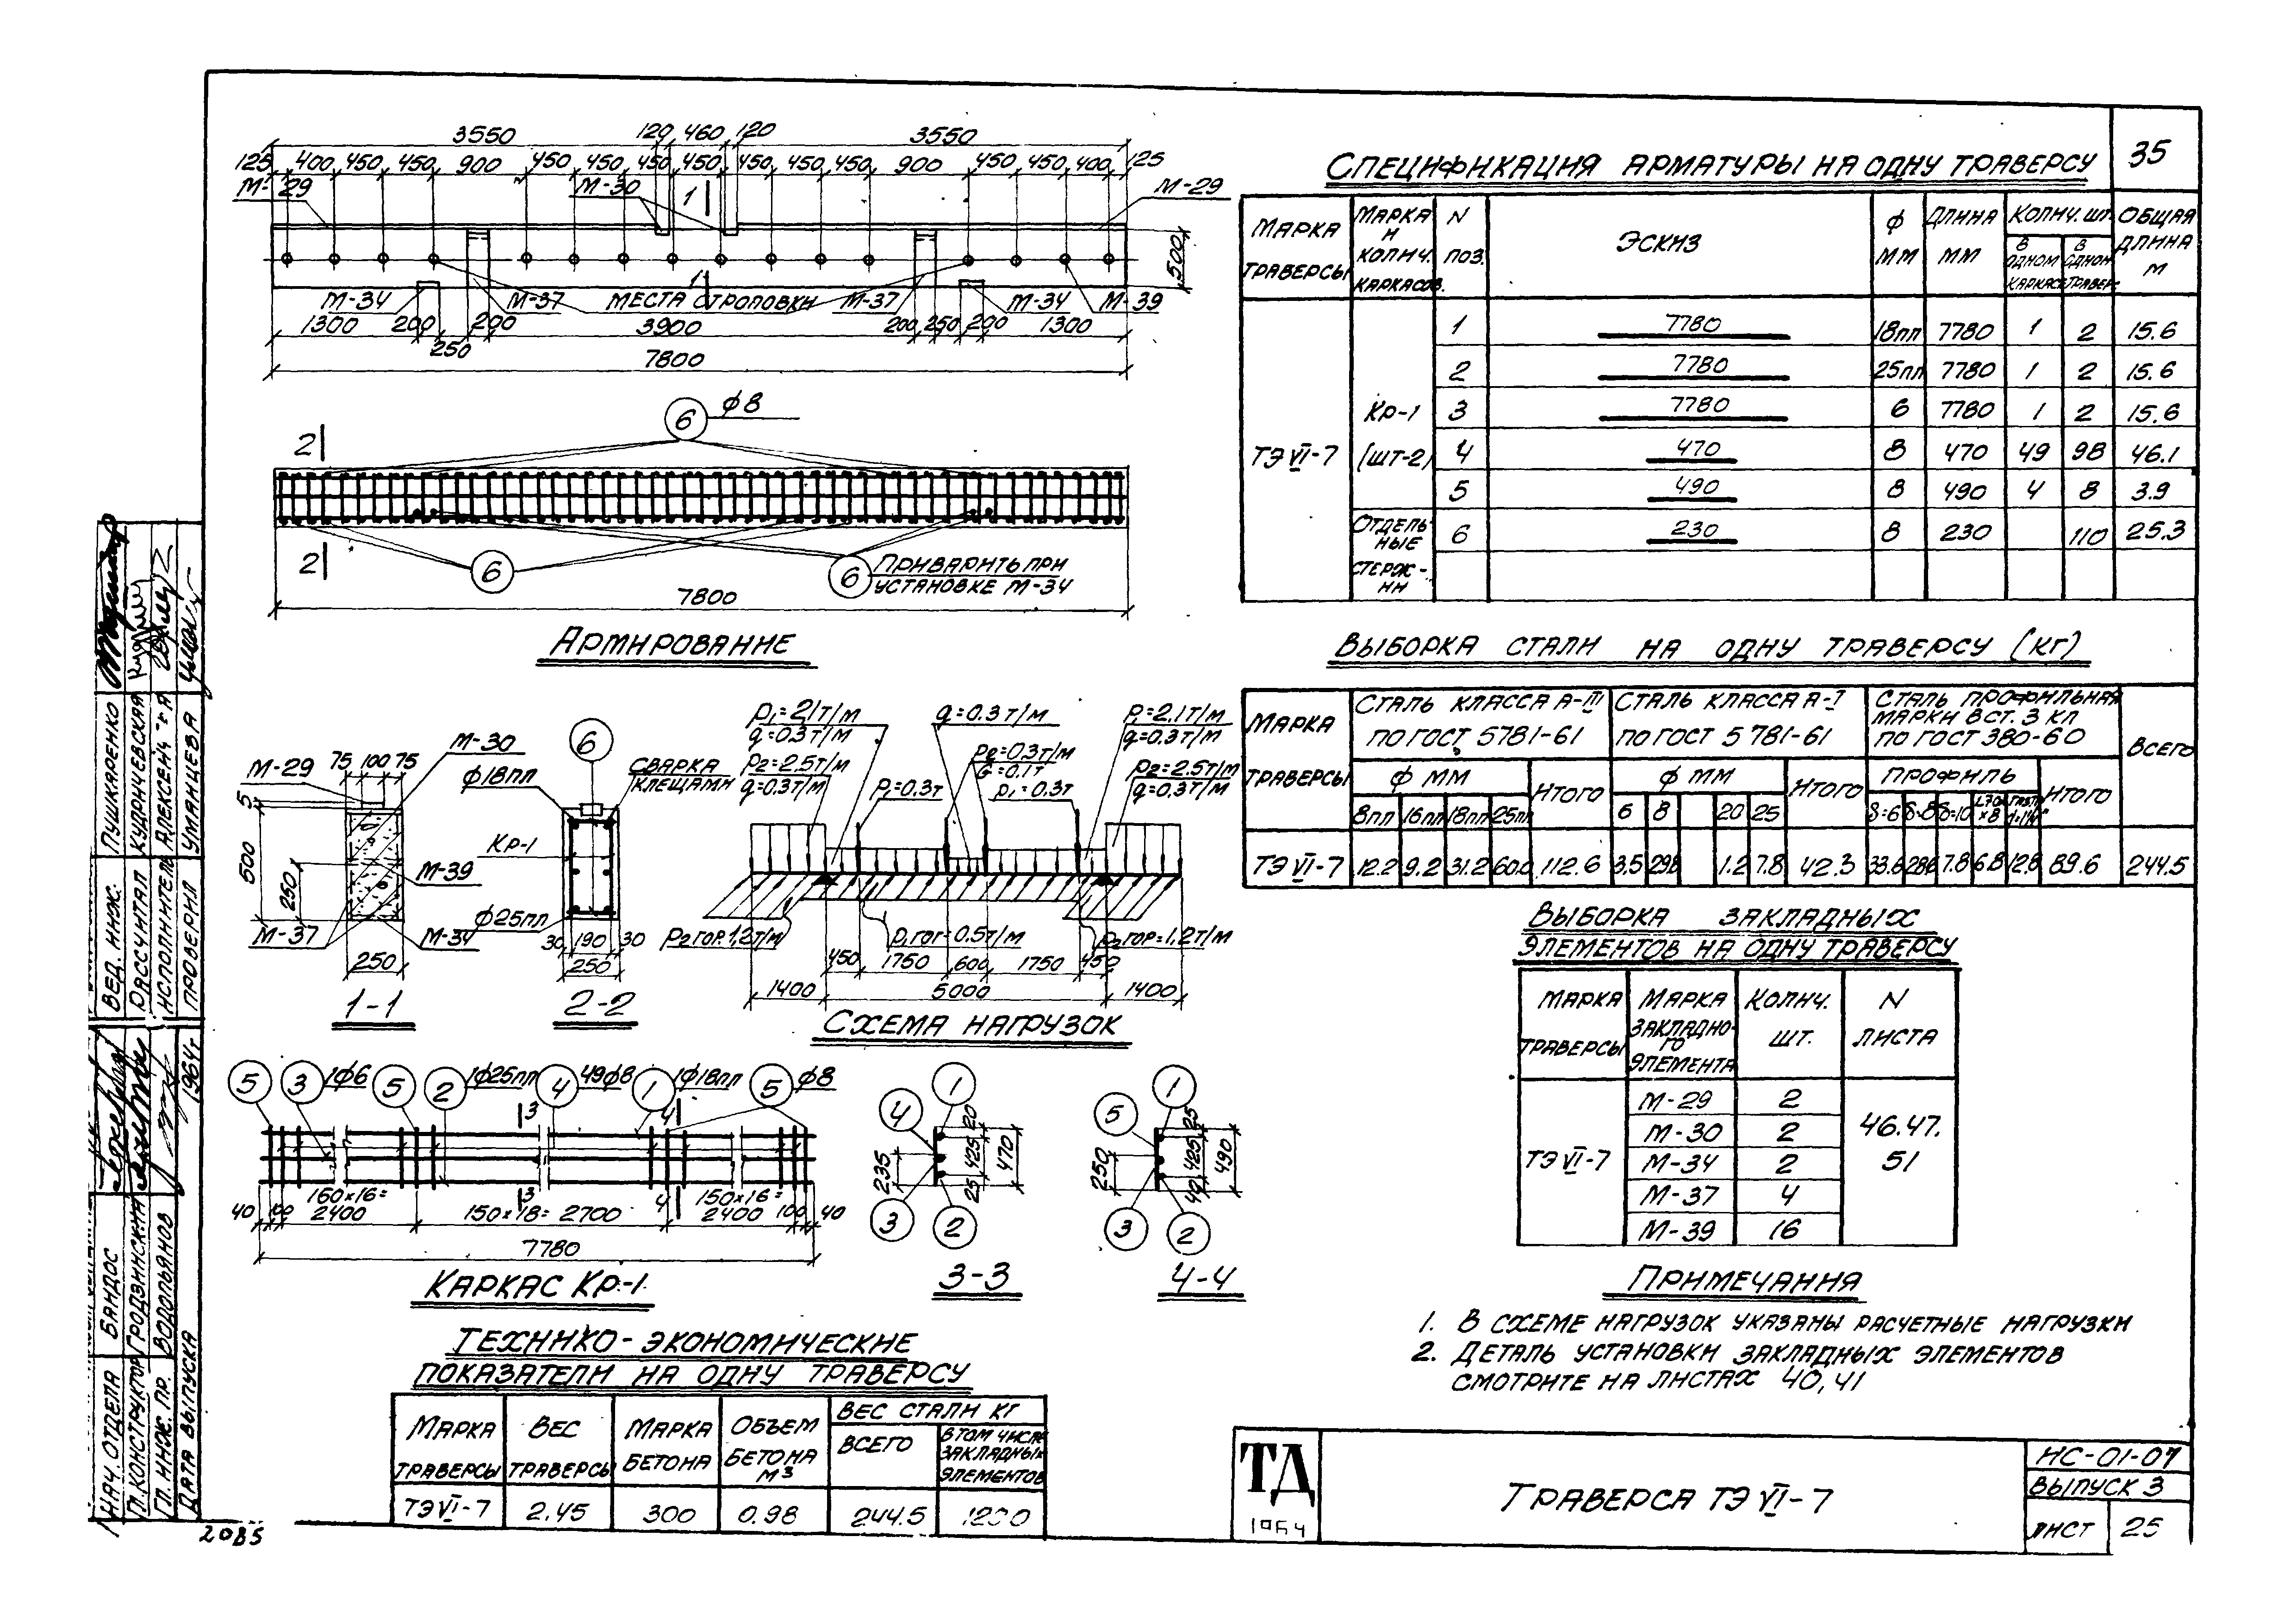 35
3550 120 460 120 3550
125 400 450 450 900 450 450 450 450 450 450 450 900 450 450 400 125
М-29 М-30 1 М-29
500
М-34 М-37 МЕСТА СТРОПОВКИ М-37 М-34 М-39
1
1300 200 200 3900 200 250 200 1300
250
7800
6 ф8
2
2
6 6 ПРИВАРИТЬ ПРИ
УСТАНОВКЕ М-34
7800
АРМИРОВАНИЕ
М-29 75 100 75 М-30
5
500
250
М-39
М-37 М-34
250
1-1
6
ф18пл СВАРКА
КЛЕЩАМИ
Кр-1
ф25пл
30 190 30
250
2-2
P1=2.1т/м q=0.3т/м P1=2.1т/м
q=0.3т/м q=0.3т/м
P2=2.5т/м P2=0.3т/м P2=2.5т/м
q=0.3т/м G=0.1т q=0.3т/м
P1=0.3т P1=0.3т
P2 ГОР. 1,2т/м P1 ГОР=0.5т/м P2 ГОР=1,2т/м
450 1750 600 1750 450
1400 5000 1400
СХЕМА НАГРУЗОК
5 3 1ф6 5 2 1ф25пл 4 49ф8 1 1ф18пл 5 ф8
3 4
3 4
160х16= 150х16=
40 100 2400 150х18=2700 2400 100 40
7780
КАРКАС КР-1
1
4
20
425
25
470
235
3 2
3-3
1
5
25
425
40
490
250
3 2
4-4
ТЕХНИКО-ЭКОНОМИЧЕСКИЕ
ПОКАЗАТЕЛИ НА ОДНУ ТРАВЕРСУ
МАРКА ТРАВЕРСЫ ВЕС ТРАВЕРСЫ МАРКА БЕТОНА ОБЪЕМ БЕТОНА М3 ВЕС СТАЛИ КГ
ВСЕГО В ТОМ ЧИСЛЕ ЗАКЛАДНЫХ ЭЛЕМЕНТОВ
ТЭ VI-7 2.45 300 0.98 244.5
СПЕЦИФИКАЦИЯ АРМАТУРЫ НА ОДНУ ТРАВЕРСУ
МАРКА ТРАВЕРСЫ МАРКА И КОЛИЧ. КАРКАСОВ. N ПОЗ. ЭСКИЗ ф ММ ДЛИНА ММ КОЛИЧ. ШТ. ОБЩАЯ ДЛИНА М
В ОДНОМ КАРКАСЕ В ОДНОЙ ТРАВЕР.
ТЭ VI-7 Кр-1 (ШТ-2)
1 7780 18пл 7780 1 2 15.6
2 7780 25пл 7780 1 2 15.6
3 7780 6 7780 1 2 15.6
4 470 8 470 49 98 46.1
5 490 8 490 4 8 3.9
ОТДЕЛЬНЫЕ СТЕРЖНИ 6 230 8 230 110 25.3
ВЫБОРКА СТАЛИ НА ОДНУ ТРАВЕРСУ (КГ)
МАРКА ТРАВЕРСЫ СТАЛЬ КЛАССА А-III ПО ГОСТ 5781-61 СТАЛЬ КЛАССА А-I ПО ГОСТ 5781-61 СТАЛЬ ПРОФИЛЬНАЯ МАРКИ В СТ. 3 КП ПО ГОСТ 380-60 ВСЕГО
ф ММ ИТОГО ф ММ ИТОГО ПРОФИЛЬ ИТОГО
8пл 16пл 18пл 25пл 6 8 20 25 δ=6 δ=8 δ=10
ТЭ VI-7 12.2 9.2 31.2 60.0 112.6 3.5 29.8 1.2 7.8 42.3 33.6 28.6 7.8 6.8 12.8 89.6 244.5
ВЫБОРКА ЗАКЛАДНЫХ
ЭЛЕМЕНТОВ НА ОДНУ ТРАВЕРСУ
МАРКА ТРАВЕРСЫ МАРКА ЗАКЛАДНОГО ЭЛЕМЕНТА КОЛИЧ. ШТ. N ЛИСТА
ТЭ VI-7
М-29 2
М-30 2
М-34 2
М-37 4
М-39 16
46.47.
51
ПРИМЕЧАНИЯ
1. В СХЕМЕ НАГРУЗОК УКАЗАНЫ РАСЧЕТНЫЕ НАГРУЗКИ
2. ДЕТАЛЬ УСТАНОВКИ ЗАКЛАДНЫХ ЭЛЕМЕНТОВ
СМОТРИТЕ НА ЛИСТАХ 40,41
ТД
1964
ТРАВЕРСА ТЭ VI-7
НС-01-07
ВЫПУСК 3
ЛИСТ 25
ВЕД. ИНЖ. ПУШКАРЕНКО
РАССЧИТАЛ КУДРИЧЕВСКАЯ
ИСПОЛНИТЕЛЬ
ПРОВЕРИЛ УМАНЦЕВА
НАЧ. ОТДЕЛА БАНДОС
ГЛ. КОНСТРУКТОР ГРОДЗИНСКИЙ
ГЛ. ИНЖ. ПР. ВОДОПЬЯНОВ
ДАТА ВЫПУСКА 1964г